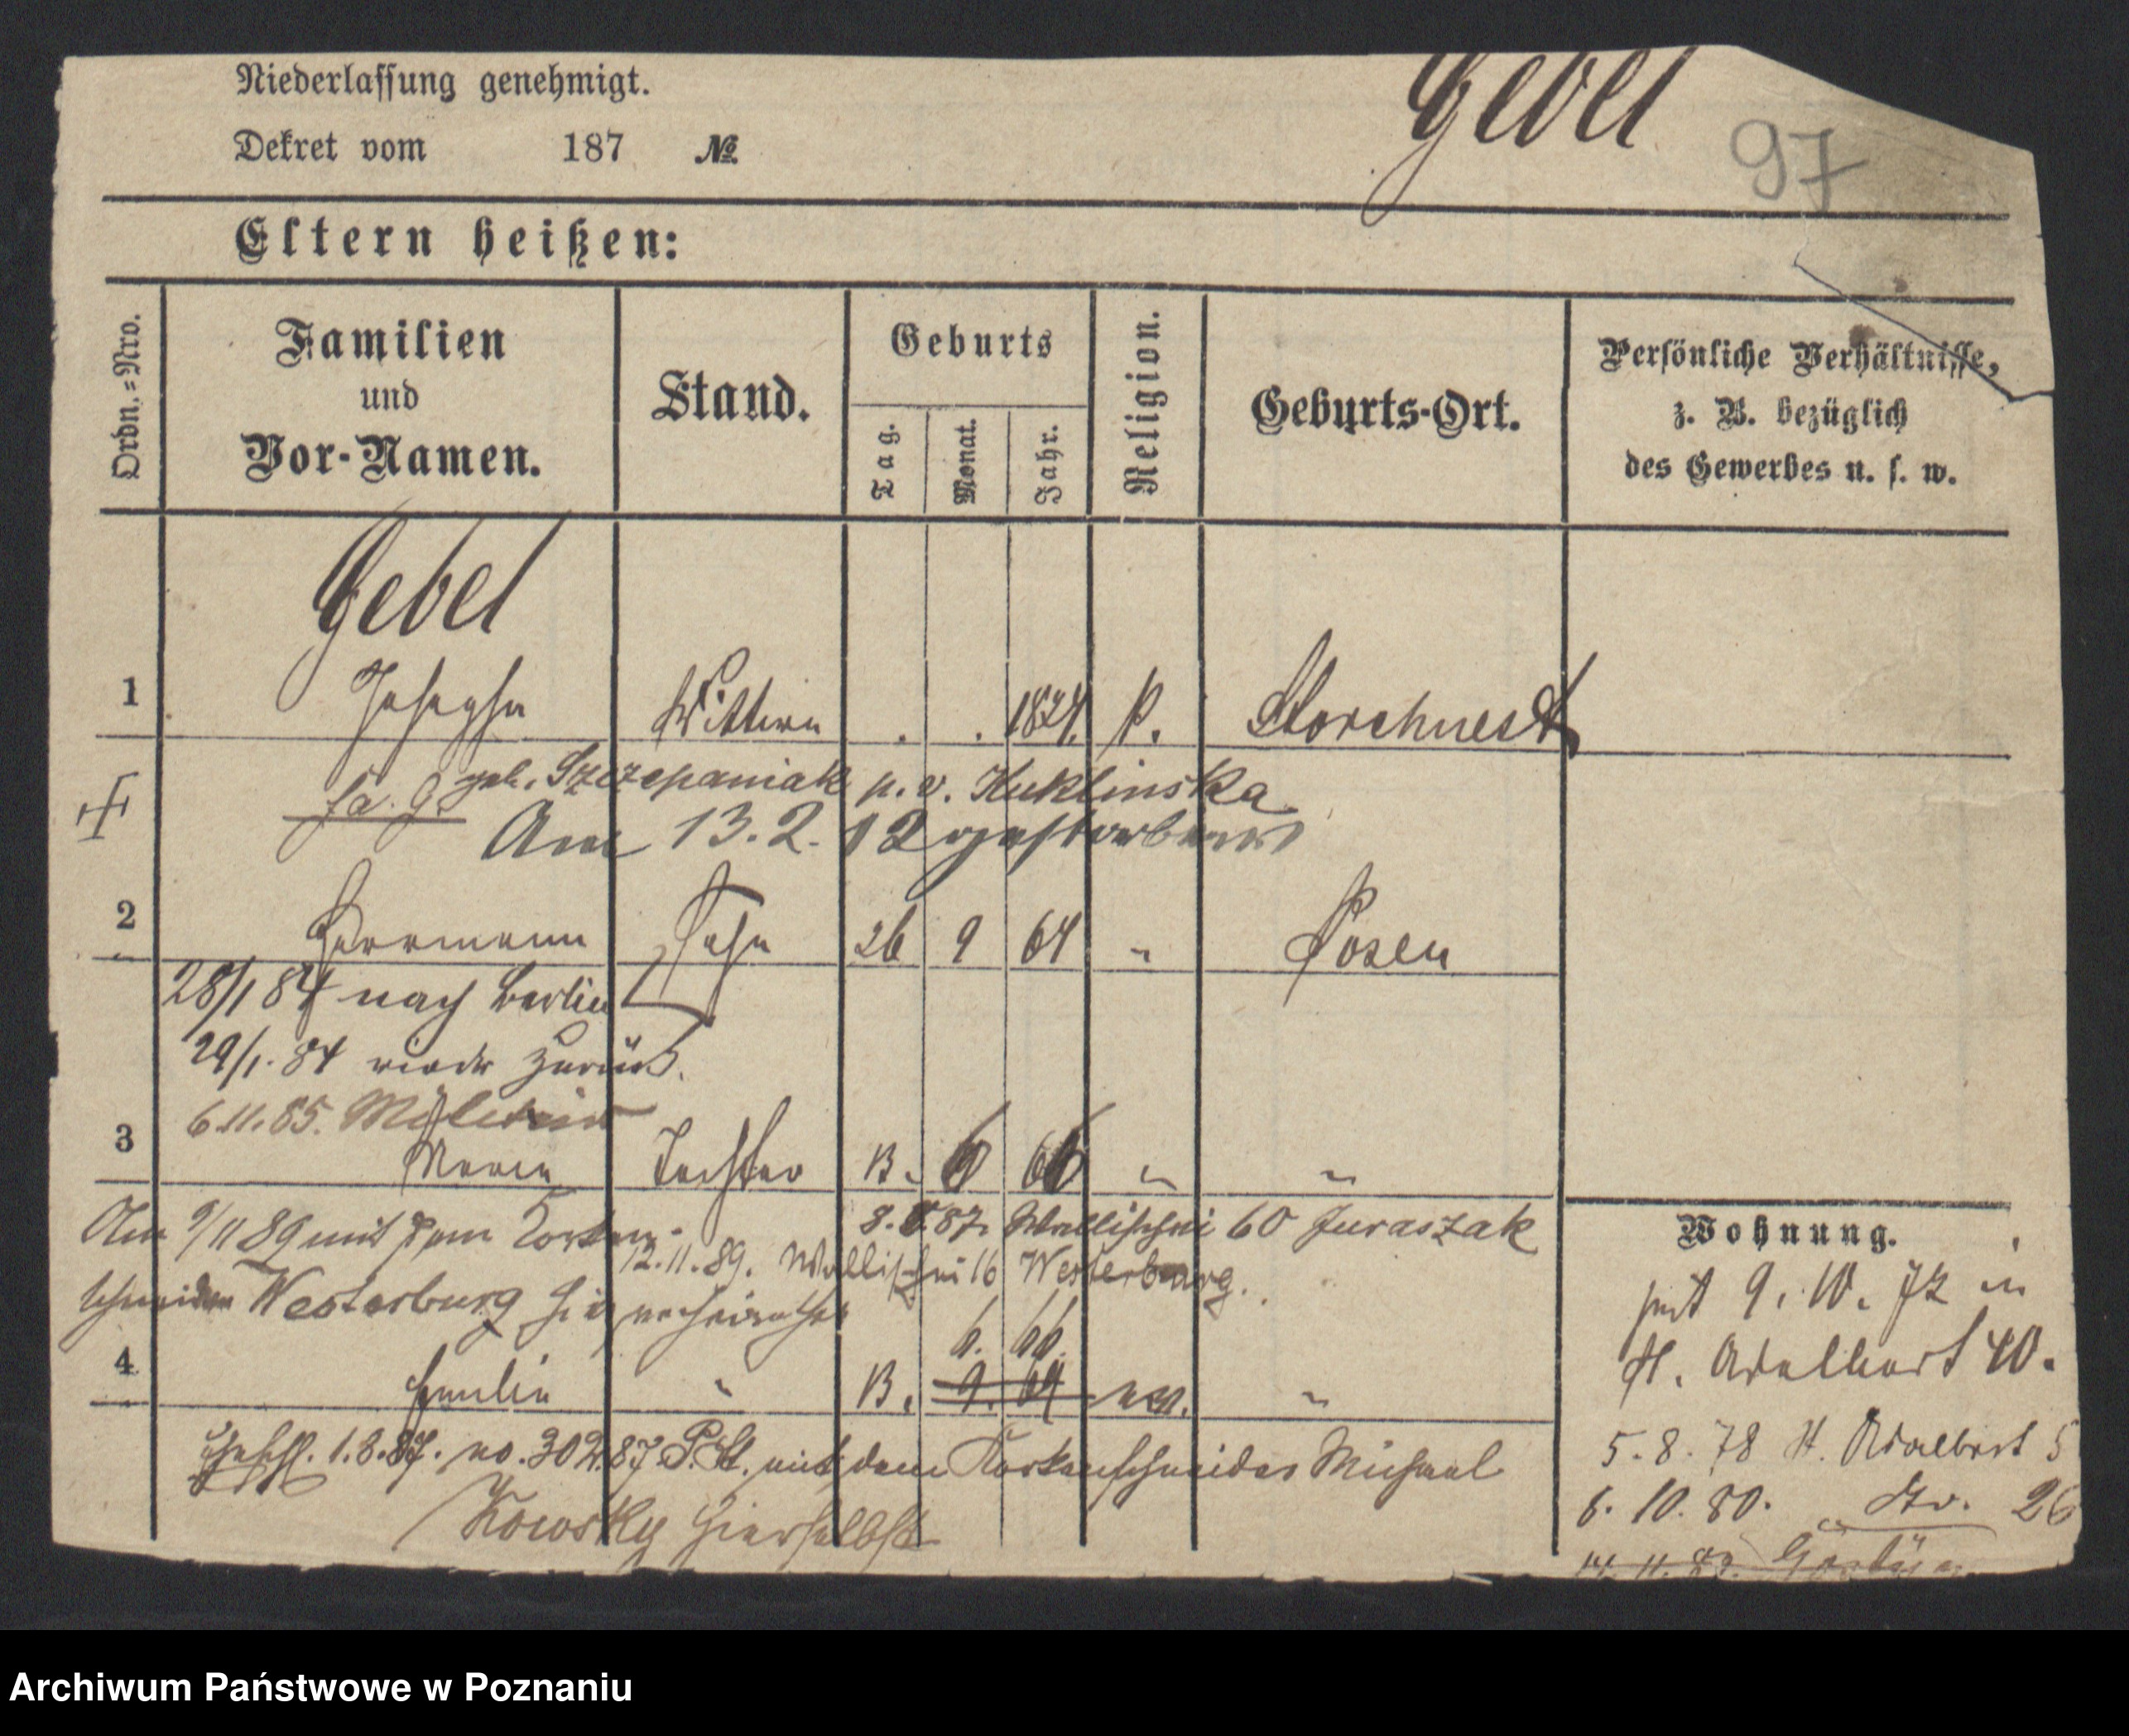 Niederlassung genehmigt.
Gebel
Dekret vom 187 №
97
Eltern heißen:
Ordn.=Nro.
Familien
und
Vor-Namen.
Stand.
Geburts
Tag.
Monat.
Jahr.
Religion.
Geburts-Ort.
Persönliche Verhältnisse,
z. B. bezüglich
des Gewerbes u. s. w.
Gebel
1 Josepha Wittwe . . 1824. k. Storchnest
geb. Szczepaniak p. v. Kuklinska
Am 13.2. 12 gestorben
2 Herrmann Sohn 26 9 64 " Posen
28/1 84 nach Berlin
29/1. 84 wieder zurück.
6.11.85. Militair
3 Maria Tochter 13. 6 66 " "
Am 9/11 89 mit dem Korken-
8. 87. Wallischei 60 Juraszak
12.11.89. Wallischei 16 Westerburg.
schneider Westerburg hier verheirathet
6. 66.
4 Emilie " 13. 9. 64 " "
1.8.87. no. 302.87 P. St. mit dem Korkenschneider Michael
Kowsky hierselbst
Wohnung.
seit 9. 10. 72 in
St. Adalbert 40.
5.8.78 St. Adalbert 5
6. 10. 80. Str. 26
14. 11. 83.
Archiwum Państwowe w Poznaniu